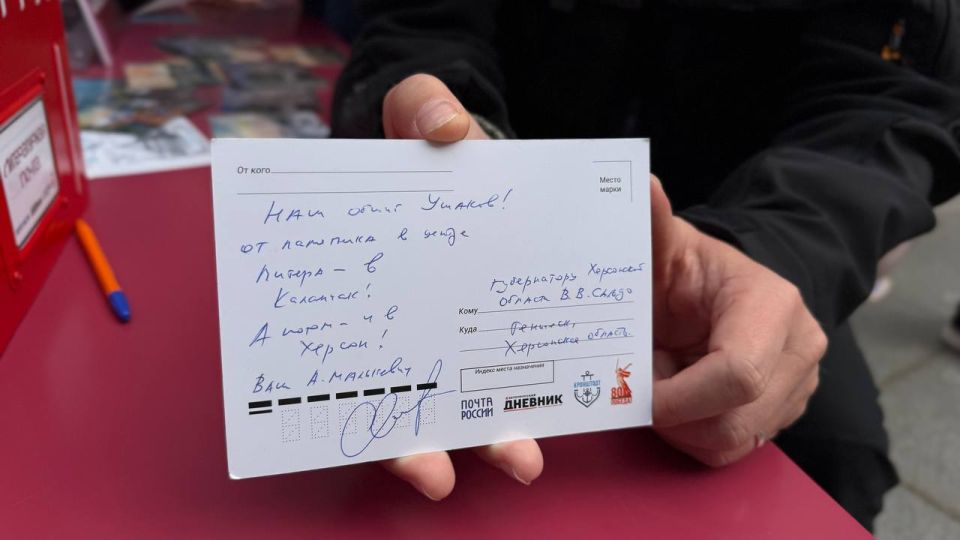 От кого
Место
марки
Наш общий Ушаков!
от памятника в центре
Питера - в
Каланчак!
А потом - и в
Херсон!
Ваш А. Малькевич
Губернатору Херсонской
области В.В. Сальдо
Кому
Куда Геническ,
Херсонская область.
Индекс места назначения
ПОЧТА
РОССИИ
ДНЕВНИК
КРОНШТАДТ
80
ПОБЕДА!
ПОЧТА